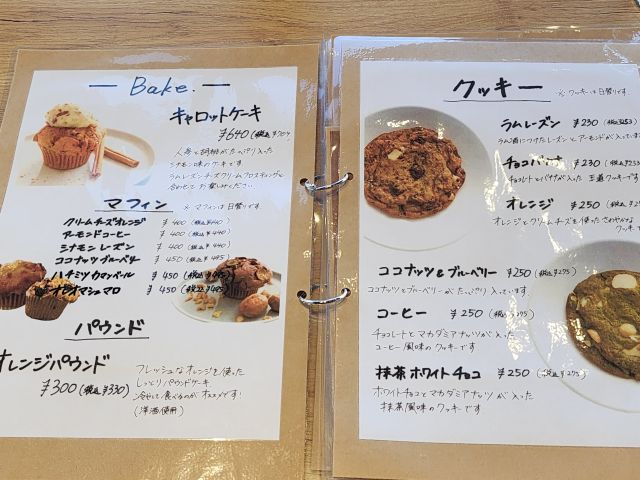 Bake.
キャロットケーキ
¥640 (税込 ¥704
人参と胡桃がたっぷり入った
シナモン味のケーキです
ラムレーズンチーズクリームフロスティングと
合わせてお楽しみください
マフィン
※ マフィンは日替りです.
クリームチーズオレンジ ¥400 (税込¥440)
アーモンドコーヒー ¥400 (税込¥440)
シナモンレーズン ¥400 (税込¥440)
ココナッツブルーベリー ¥450 (税込¥495)
ハチミツカマンベール ¥450 (税込¥495)
マシュマロ ¥450 (税込¥495)
パウンド
オレンジパウンド
¥300 (税込¥330)
フレッシュなオレンジを使った
しっとりパウンドケーキ
冷やして食べるのがオススメです!
(洋酒使用)
クッキー
※ クッキーは日替りです.
ラムレーズン ¥230 (税込¥253)
ラム酒につけたレーズンとアーモンドが入っています
チョコバナナ ¥230 (税込¥253
チョコレートとバナナが入った 王道クッキーです
オレンジ ¥250 (税込¥275)
オレンジとクリームチーズを使ったさわやかな
クッキー
ココナッツ&ブルーベリー ¥250 (税込¥275)
ココナッツとブルーベリーがたっぷり入っています.
コーヒー ¥250 (税込¥275)
チョコレートとマカダミアナッツが入った
コーヒー風味のクッキーです
抹茶ホワイトチョコ ¥250 (税込¥275)
ホワイトチョコとマカダミアナッツが入った
抹茶風味のクッキーです